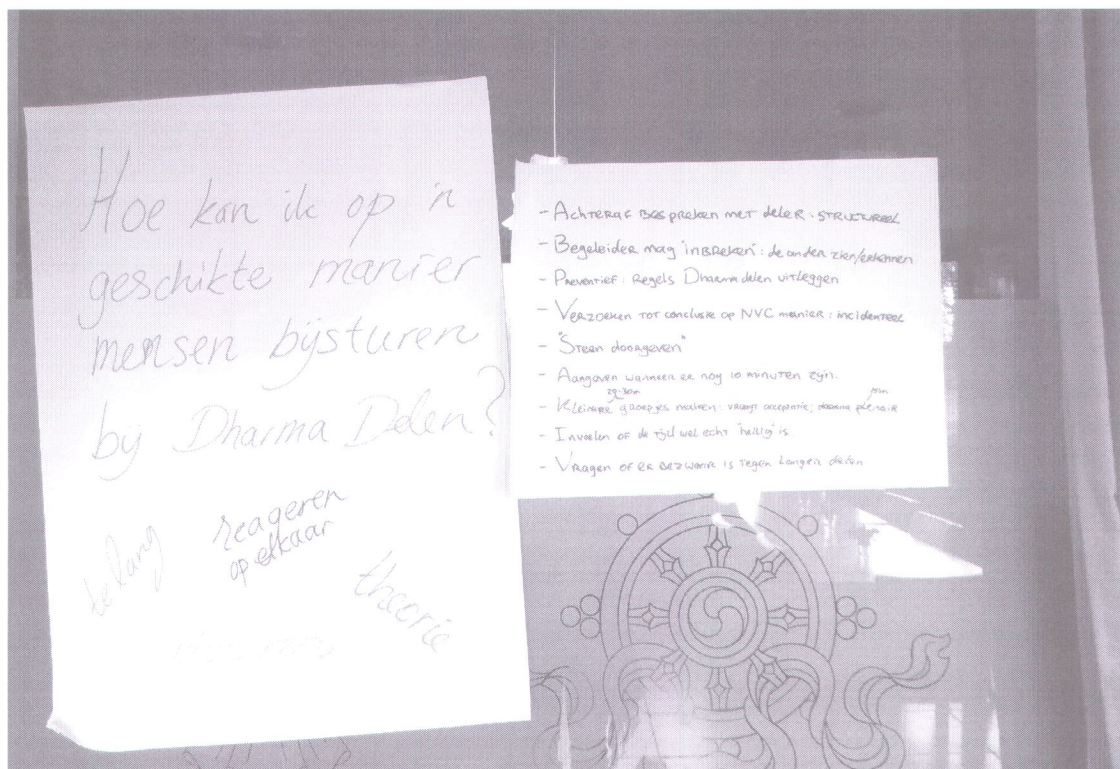 Hoe kan ik op 'n
geschikte manier
mensen bijsturen
bij Dharma Delen?
te lang
reageren
op elkaar
theorie
- Achteraf bespreken met deler : structureel
- Begeleider mag "inbreken" : de ander zien/erkennen
- Preventief : Regels Dharma delen uitleggen
- Verzoeken tot conclusie op NVC manier : incidenteel
- "Steen doorgeven"
- Aangeven wanneer er nog 10 minuten zijn.
- Kleinere groepjes maken : vraagt acceptatie; daarna plenair
- Invoelen of de tijd wel echt "heilig" is
- Vragen of er bezwaar is tegen langer delen